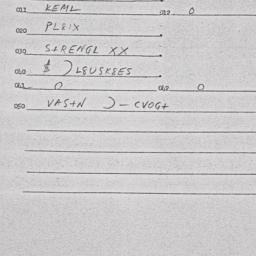 011 KEML 012 0
020 PL8IX
030 STRENGL XX
040 $ ) L8USK8ES
041 0 042 0
050 VAS+N )-CVOG+